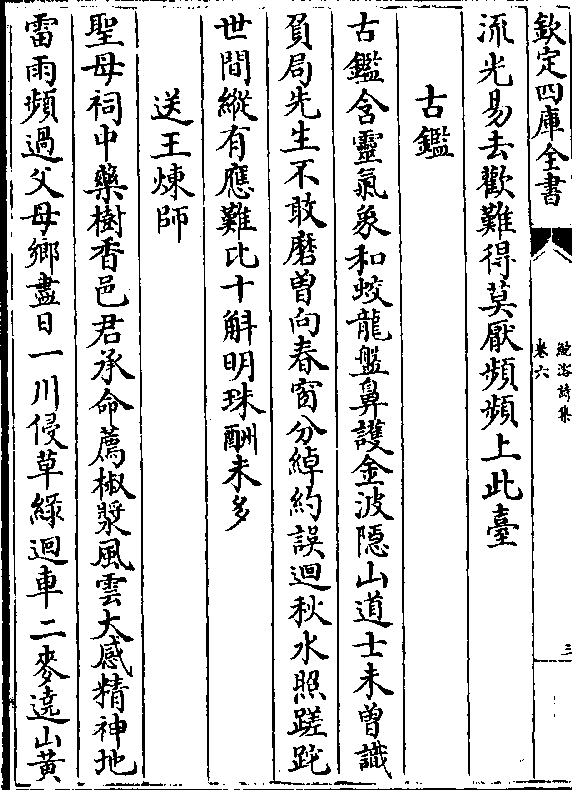 欽定四庫全書
鮑溶詩集
卷六
三
流光易去歡難得莫厭頻頻上此臺
古鑑
古鑑含靈氣象和蛟龍盤鼻護金波隠山道士未曽識
負局先生不敢磨曽向春窗分綽約誤迴秋水照蹉跎
世間縱有應難比十斛明珠酬未多
送王煉師
聖母祠中藥樹香邑君承命薦椒漿風雲大感精神地
雷雨頻過父母鄉盡日一川侵草緑迴車二麥遶山黄